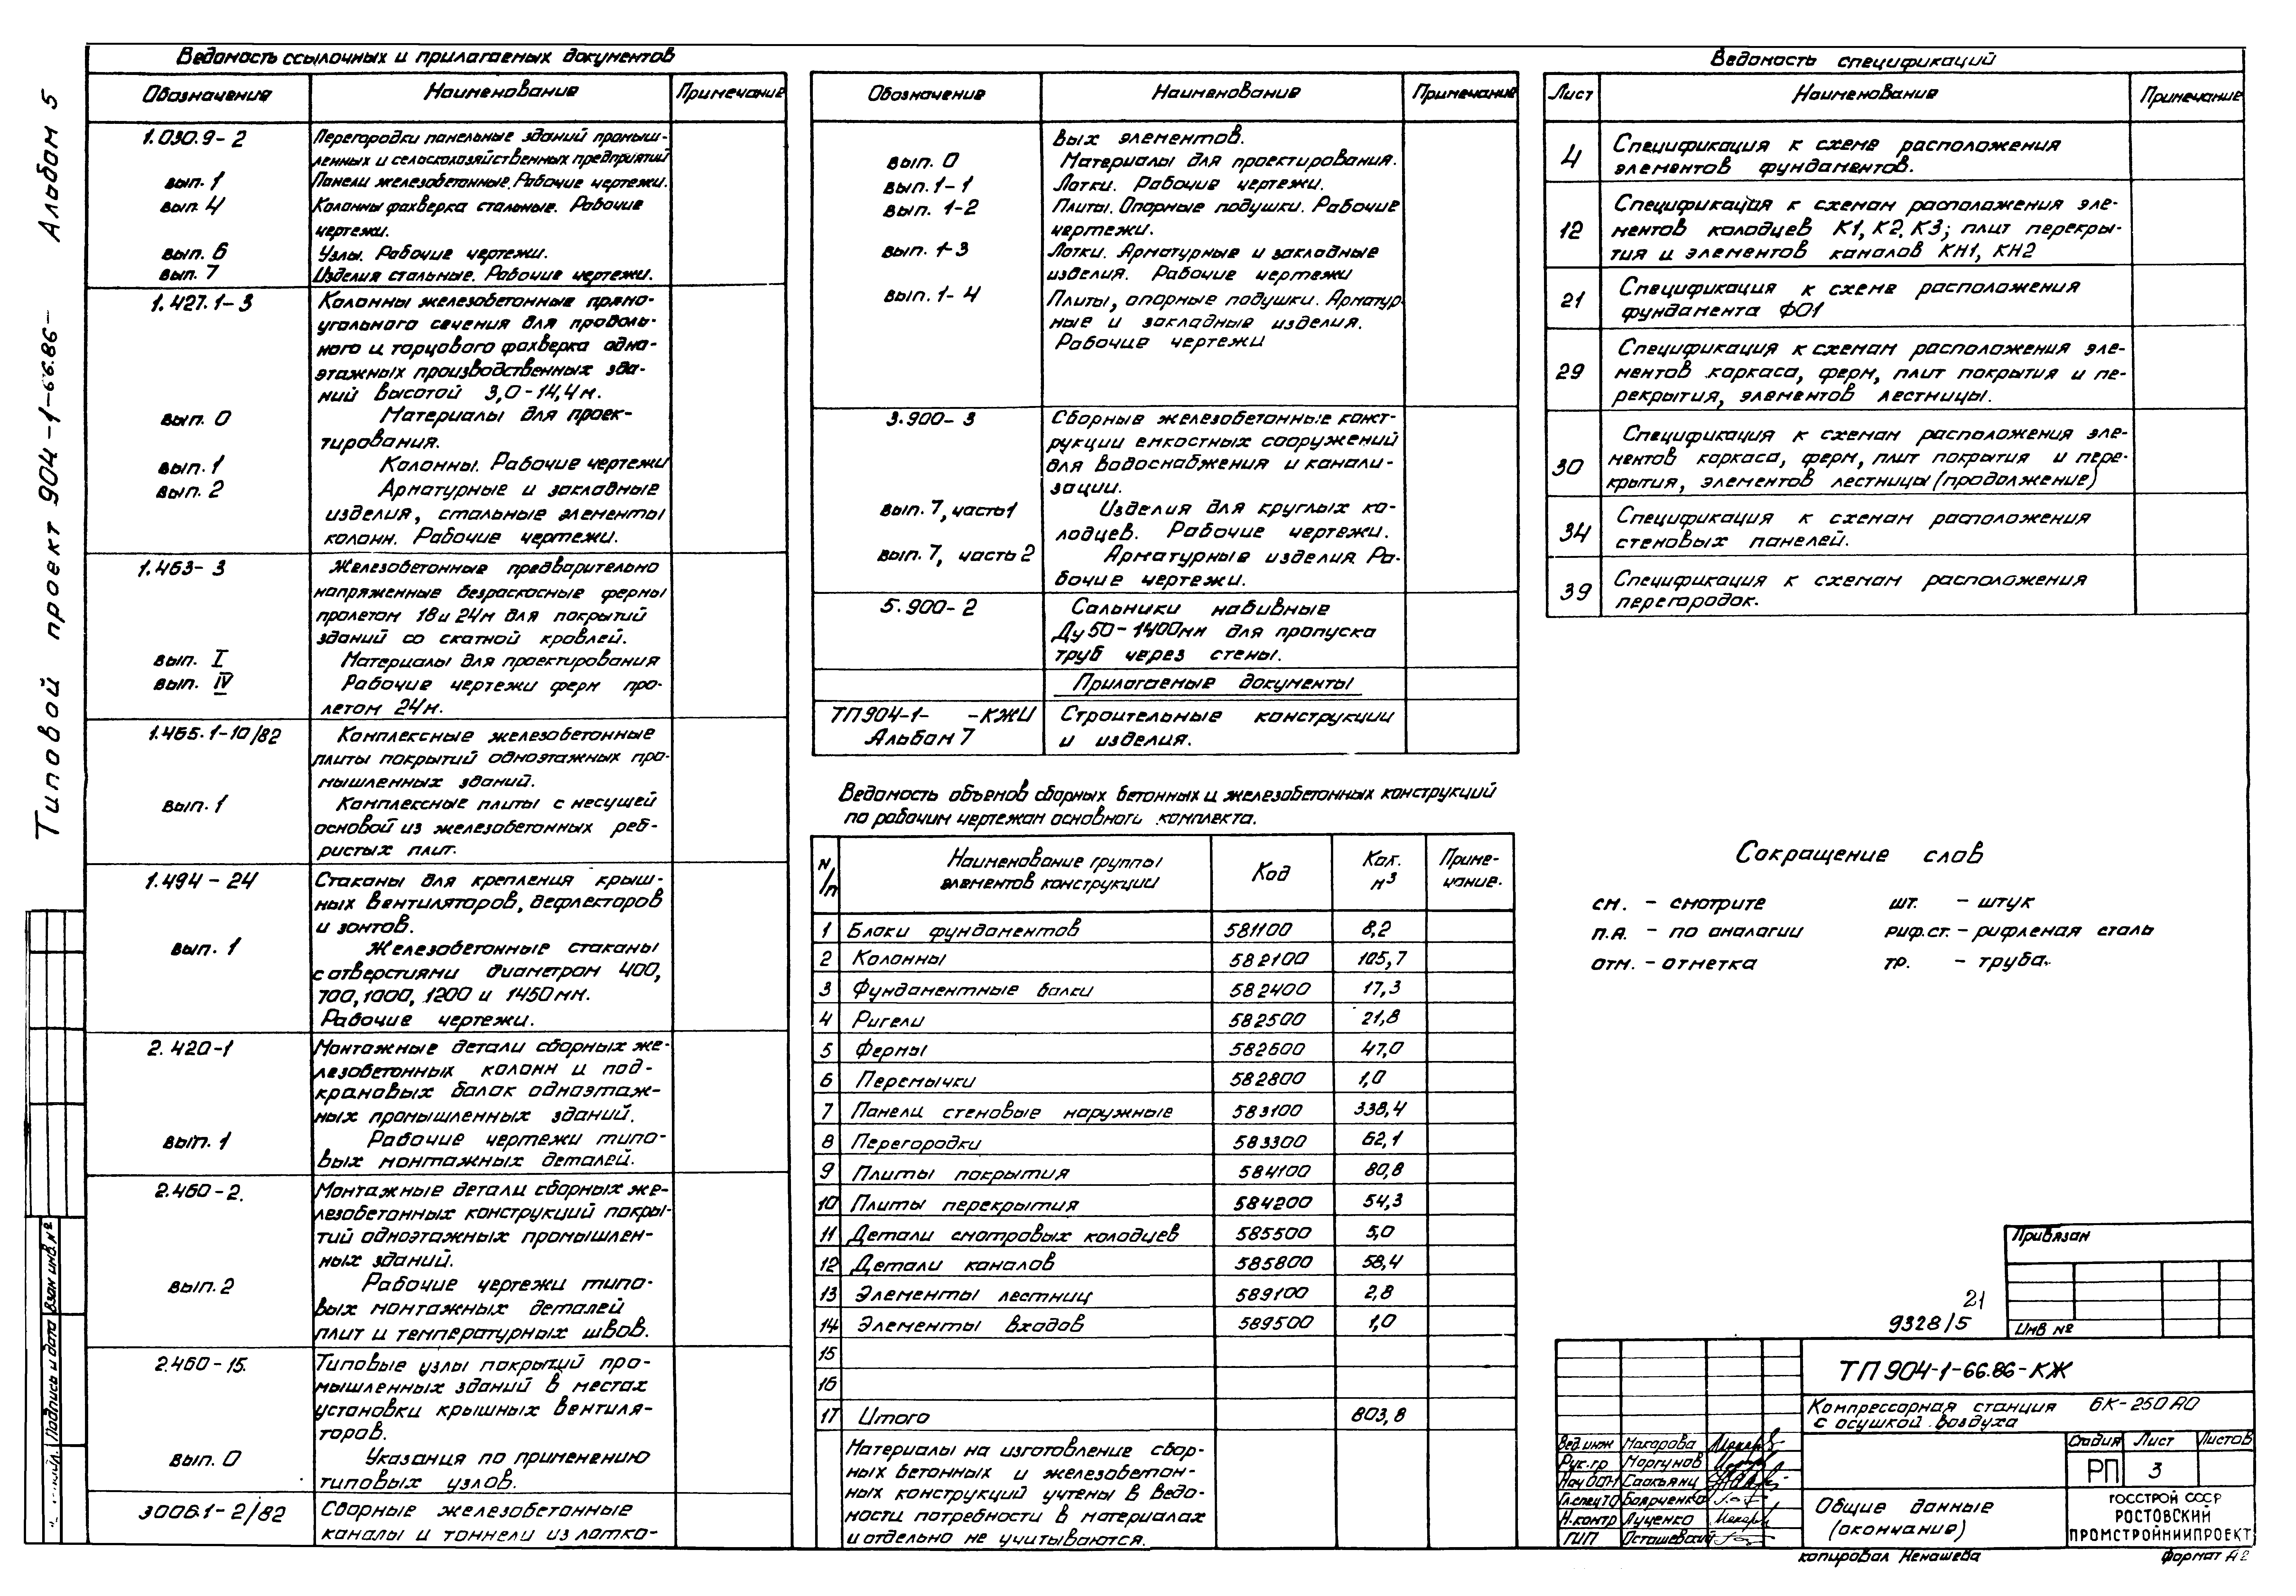 Типовой проект 904-1-66.86- Альбом 5
Ведомость ссылочных и прилагаемых документов
Обозначения Наименование Примечание
1.030.9-2 Перегородки панельные зданий промыш-
ленных и сельскохозяйственных предприятий
вып. 1 Панели железобетонные. Рабочие чертежи.
вып. 4 Колонны фахверка стальные. Рабочие
чертежи.
вып. 6 Узлы. Рабочие чертежи.
вып. 7 Изделия стальные. Рабочие чертежи.
1.427.1-3 Колонны железобетонные прямо-
угольного сечения для продоль-
ного и торцового фахверка одно-
этажных производственных зда-
ний высотой 3,0-14,4м.
вып. 0 Материалы для проек-
тирования.
вып. 1 Колонны. Рабочие чертежи
вып. 2 Арматурные и закладные
изделия, стальные элементы
колонн. Рабочие чертежи.
1.463-3 Железобетонные предварительно
напряженные безраскосные фермы
пролетом 18 и 24м для покрытий
зданий со скатной кровлей.
вып. I Материалы для проектирования
вып. IV Рабочие чертежи ферм про-
летом 24м.
1.465.1-10/82 Комплексные железобетонные
плиты покрытий одноэтажных про-
мышленных зданий.
вып. 1 Комплексные плиты с несущей
основой из железобетонных реб-
ристых плит.
1.494-24 Стаканы для крепления крыш-
ных вентиляторов, дефлекторов
и зонтов.
вып. 1 Железобетонные стаканы
с отверстиями диаметром 400,
700, 1000, 1200 и 1450мм.
Рабочие чертежи.
2.420-1 Монтажные детали сборных же-
лезобетонных колонн и под-
крановых балок одноэтаж-
ных промышленных зданий.
вып. 1 Рабочие чертежи типо-
вых монтажных деталей.
2.460-2. Монтажные детали сборных же-
лезобетонных конструкций покры-
тий одноэтажных промышлен-
ных зданий.
вып. 2 Рабочие чертежи типо-
вых монтажных деталей
плит и температурных швов.
2.460-15. Типовые узлы покрытий про-
мышленных зданий в местах
установки крышных вентиля-
торов.
вып. 0 Указания по применению
типовых узлов.
3006.1-2/82 Сборные железобетонные
каналы и тоннели из лотко-
Обозначение Наименование Примечание
вых элементов.
вып. 0 Материалы для проектирования.
вып. 1-1 Лотки. Рабочие чертежи.
вып. 1-2 Плиты. Опорные подушки. Рабочие
чертежи.
вып. 1-3 Лотки. Арматурные и закладные
изделия. Рабочие чертежи
вып. 1-4 Плиты, опорные подушки. Арматур-
ные и закладные изделия.
Рабочие чертежи
3.900-3 Сборные железобетонные конст-
рукции емкостных сооружений
для водоснабжения и канали-
зации.
вып. 7, часть 1 Изделия для круглых ко-
лодцев. Рабочие чертежи.
вып. 7, часть 2 Арматурные изделия. Ра-
бочие чертежи.
5.900-2 Сальники набивные
Ду 50-1400мм для пропуска
труб через стены.
Прилагаемые документы
ТП904-1- -КЖИ Строительные конструкции
Альбом 7 и изделия.
Ведомость объемов сборных бетонных и железобетонных конструкций
по рабочим чертежам основного комплекта.
N/п Наименование группы элементов конструкции Код Кол. м³ Приме-чание.
1 Блоки фундаментов 581100 8,2
2 Колонны 582100 105,7
3 Фундаментные балки 582400 17,3
4 Ригели 582500 21,8
5 Фермы 582600 47,0
6 Перемычки 582800 1,0
7 Панели стеновые наружные 583100 338,4
8 Перегородки 583300 62,1
9 Плиты покрытия 584100 80,8
10 Плиты перекрытия 584200 54,3
11 Детали смотровых колодцев 585500 5,0
12 Детали каналов 585800 58,4
13 Элементы лестниц 589100 2,8
14 Элементы входов 589500 1,0
15
16
17 Итого 803,8
Материалы на изготовление сбор-
ных бетонных и железобетон-
ных конструкций учтены в Ведо-
мости потребности в материалах
и отдельно не учитываются.
Ведомость спецификаций
Лист Наименование Примечание
4 Спецификация к схеме расположения
элементов фундаментов.
12 Спецификация к схемам расположения эле-
ментов колодцев К1, К2, К3; плит перекры-
тия и элементов каналов КН1, КН2
21 Спецификация к схеме расположения
фундамента ФО1
29 Спецификация к схемам расположения эле-
ментов каркаса, ферм, плит покрытия и пе-
рекрытия, элементов лестницы.
30 Спецификация к схемам расположения эле-
ментов каркаса, ферм, плит покрытия и пере-
крытия, элементов лестницы (продолжение)
34 Спецификация к схемам расположения
стеновых панелей.
39 Спецификация к схемам расположения
перегородок.
Сокращение слов
см. - смотрите шт. - штук
п.а. - по аналогии риф.ст. - рифленая сталь
отм. - отметка тр. - труба.
Привязан
Инв №
21
9328/5
ТП 904-1-66.86-КЖ
Компрессорная станция 6К-250АО
с осушкой воздуха
Вед.инж Макарова
Рук.гр Моргунов
Нач.отд Саакьянц
Гл.спец ТО Боярченко
Н.контр Луценко
ГИП Осташевский
Стадия Лист Листов
РП 3
Общие данные
(окончание)
ГОССТРОЙ СССР
РОСТОВСКИЙ
ПРОМСТРОЙНИИПРОЕКТ
копировал Ненашева формат А2
Подпись и дата Взам инв.№